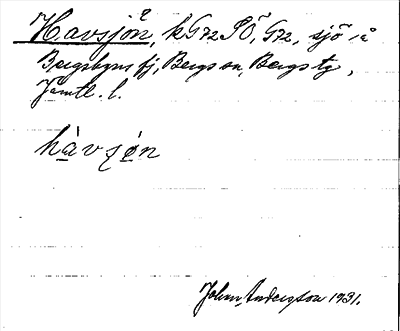 Havsjön, k G72 SÖ, G72, sjö i å
Bergsbyns fj, Bergs sn, Bergs tg,
Jämtl. l.
hàvsjøn
John Anderson 1931.